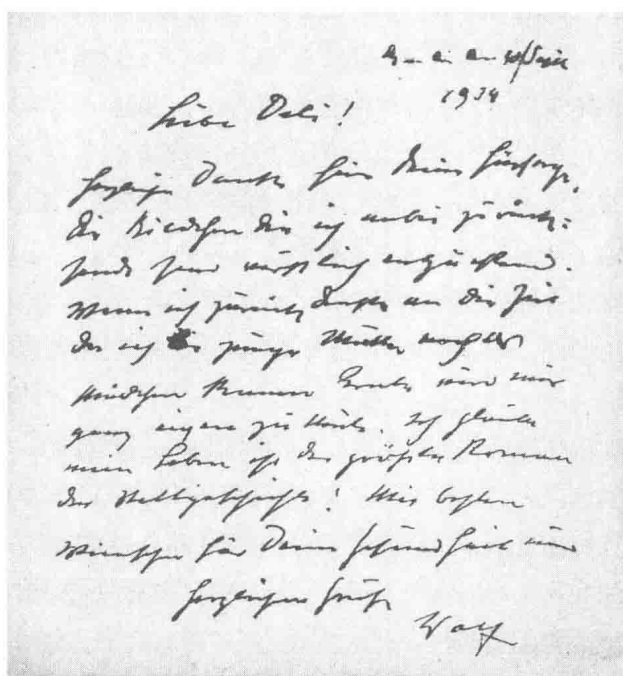 1934
Liebe Deli!
Herzlichen Dank für Deine Fürsorge.
Die Bildchen die ich anbei zurück:
sende sind wirklich entzückend.
Wenn ich zurück denke an die Zeit
da ich junge Mutter noch als
Mädchen kennen lernte wird mir
ganz eigen zu Mute. Ich glaube
mein Leben ist der größte Roman
der Weltgeschichte! Mit besten
Wünschen für Deine Gesundheit und
herzlichen Grüßen
Wolf